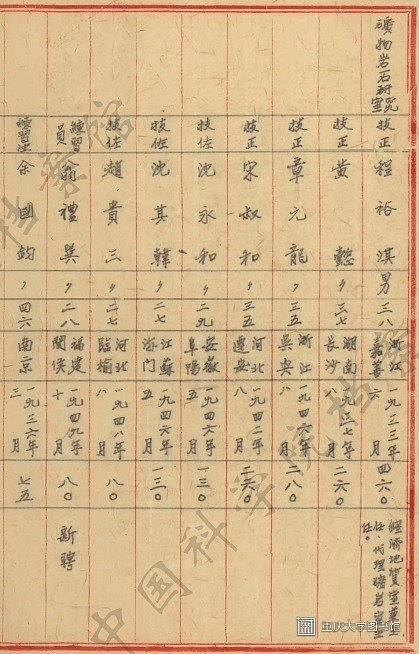 礦物岩石研究室 技正 程裕淇 男 三八 浙江嘉善 一九三三年六月 四六〇 經濟地質室主任、代理礦岩室主任。
技正 黄懿 〃 三七 湖南長沙 一九三七年八月 二六〇
技正 章元龍 〃 三五 浙江 八月 二八〇
技正 宋叔和 〃 三五 河北遷安 一九四二年 月 二六〇
技佐 沈永和 〃 二九 安徽阜陽 一九四六年五月 一三〇
技佐 沈其韓 〃 二七 江蘇海门 一九四六年五月 一三〇
技佐 趙貴三 〃 二七 河北臨榆 一九四八年八月 八〇
練習員 翁禮巽 〃 二八 福建閩侯 一九四九年十月 八〇 新聘
練習生 余國鈞 〃 四六 南京 一九三六年三月 七五
中国科学院档案馆
重庆大学图书馆